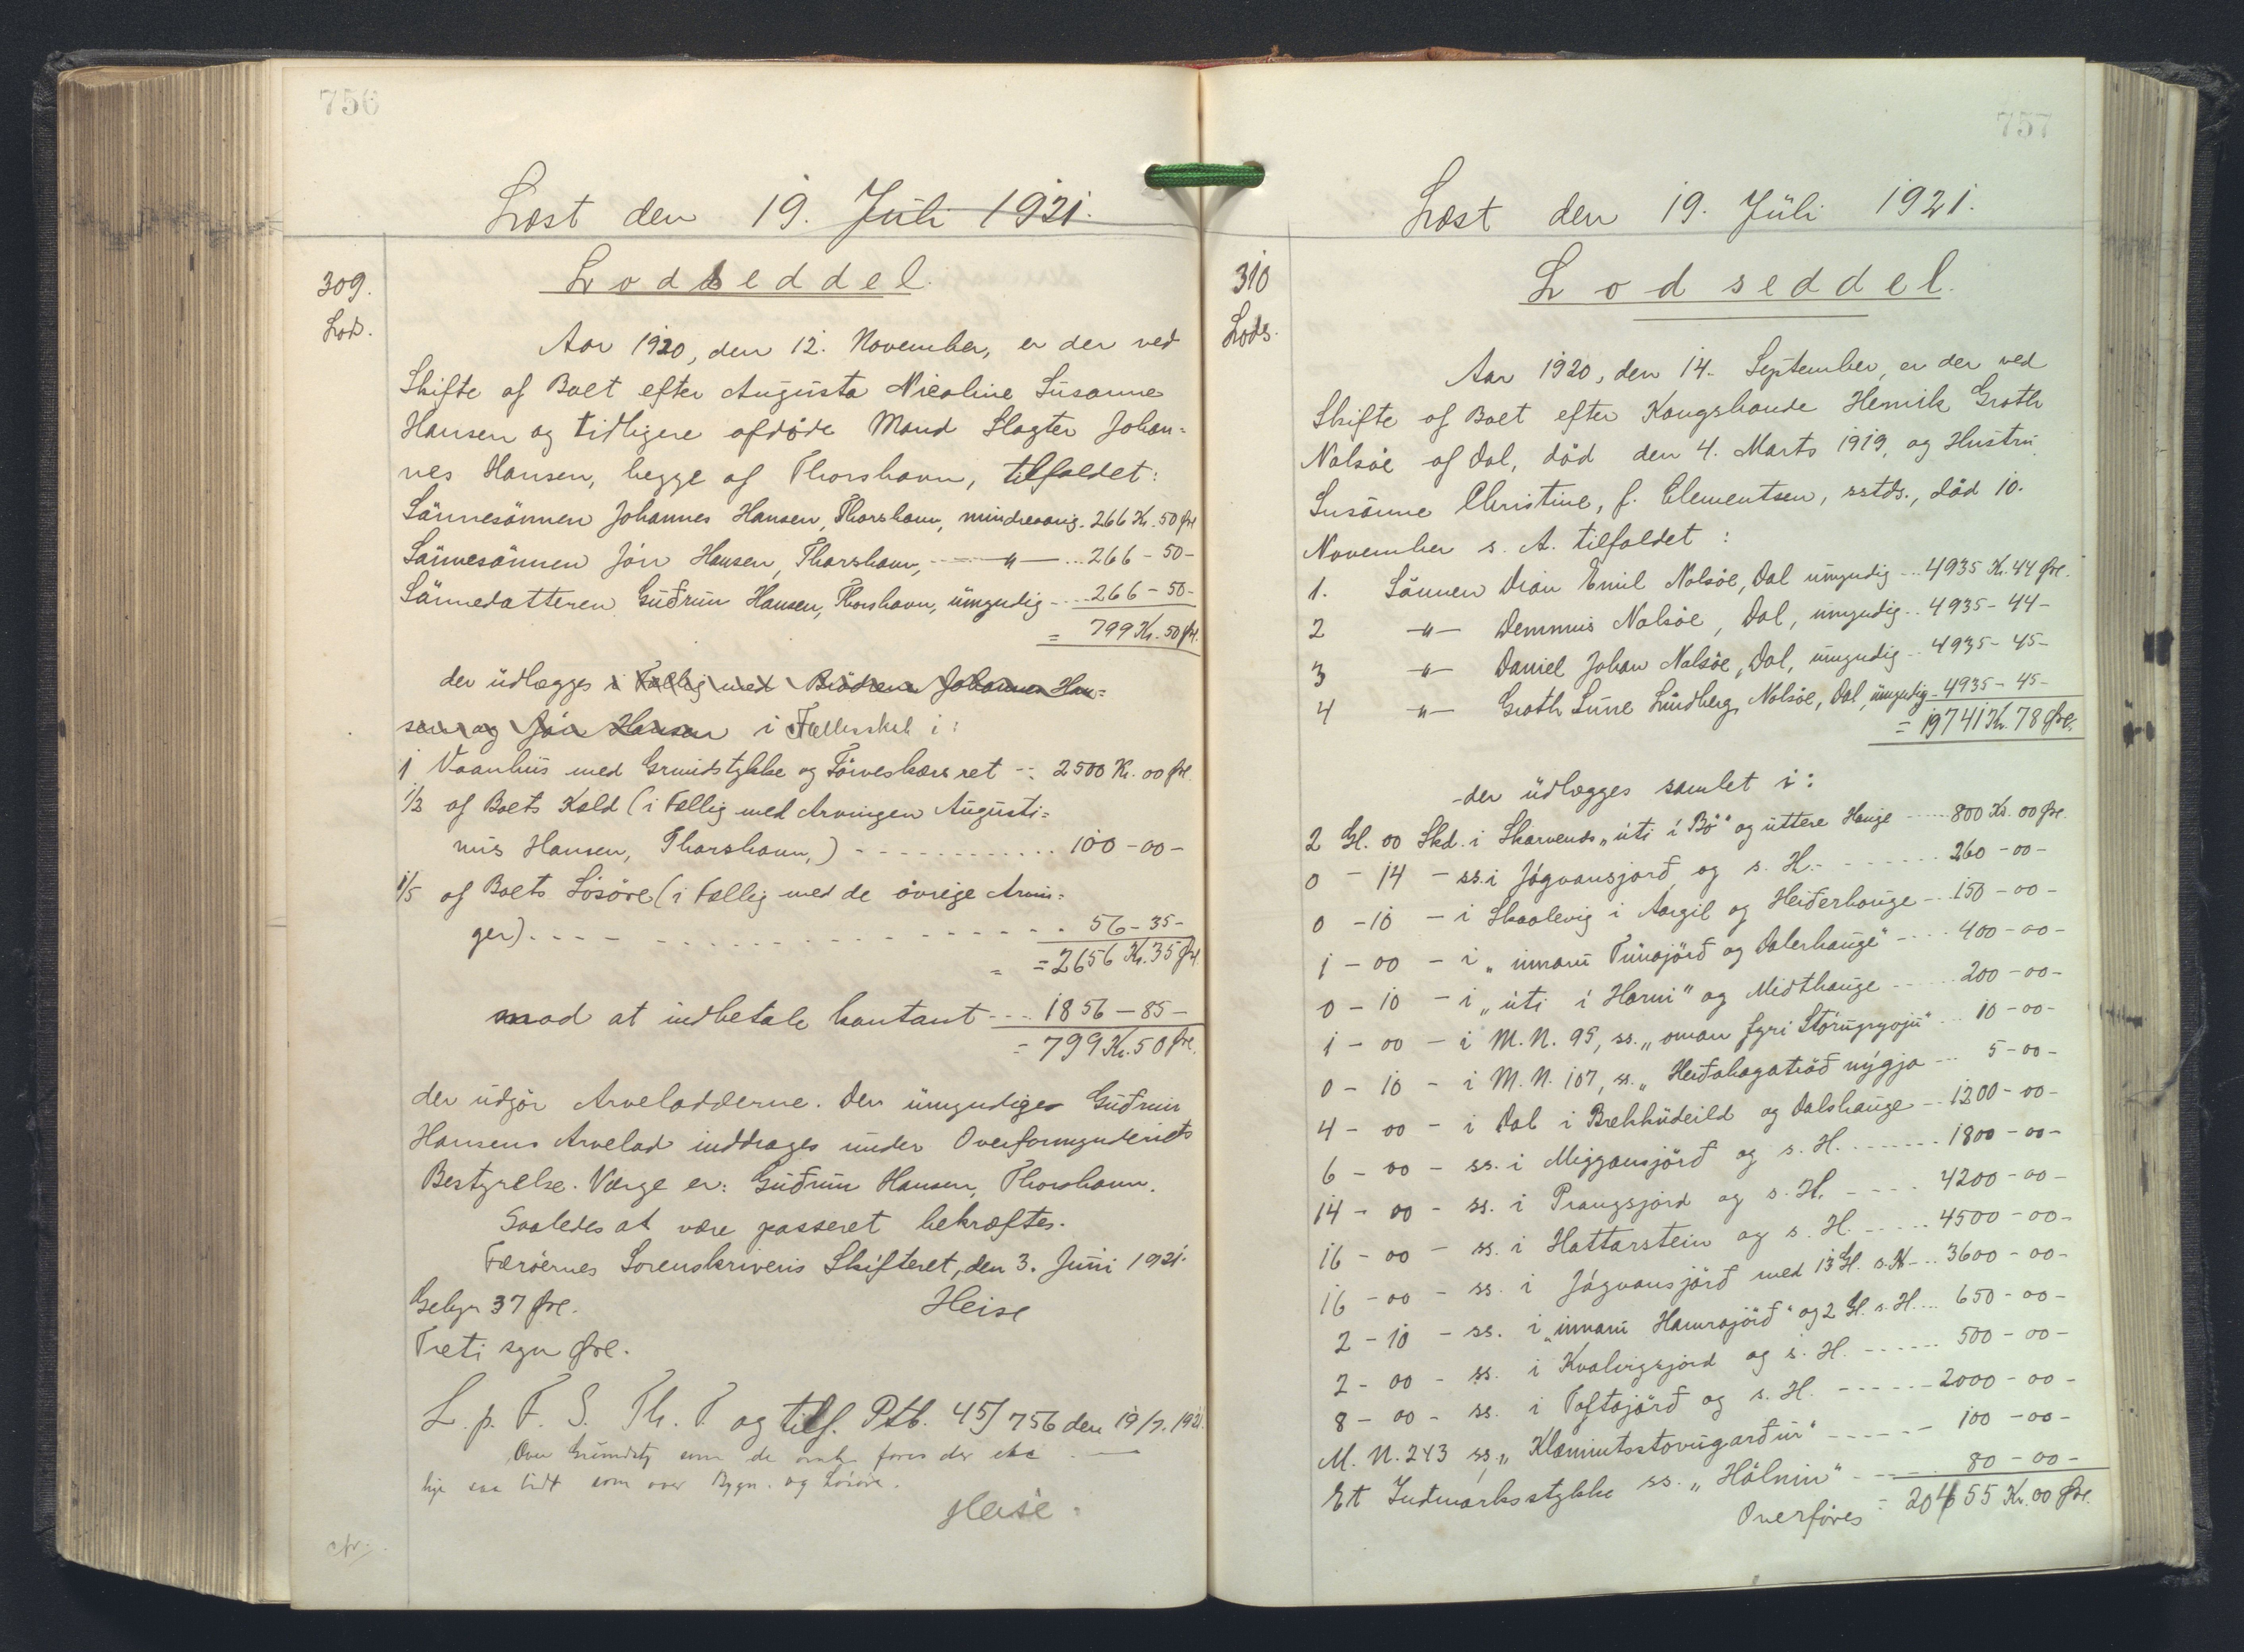 756
Læst den 19. Juli 1921.
309.
Lod.
Lodseddel.
Aar 1920, den 12. November, er der ved
Skifte af Boet efter Augusta Nicoline Susanne
Hansen og tidligere afdøde Mand Slagter Johan=
nes Hansen, begge af Thorshavn, tilfaldet:
Sønnesønnen Johannes Hansen, Thorshavn, mindreaarig. 266 Kr. 50 Øre
Sønnesønnen Jón Hansen, Thorshavn, — " — ... 266 - 50 -
Sønnedatteren Guðrun Hansen, Thorshavn, umyndig .... 266 - 50 -
= 799 Kr. 50 Øre.
der udlægges i Fællig med Brødrene Johannes Han=
sen og Jón Hansen i Fællesskab i:
1 Vaanhus med Grundstykke og Tørveskærsret -: 2500 Kr. 00 Øre.
1/2 af Boets Kold (i Fællig med Arvingen Augusti=
nus Hansen, Thorshavn,) - - - 100 - 00 -
1/5 af Boets Løsøre (i Fællig med de øvrige Arvin=
ger). - - - 56 - 35 -
= = 2656 Kr. 35 Øre
mod at indbetale kontant .... 1856 - 85 -
= 799 Kr. 50 Øre.
der udgør Arvelodderne. Den umyndige Guðrun
Hansens Arvelod inddrages under Overformynderiets
Bestyrelse. Værge er: Guðrun Hansen, Thorshavn.
Saaledes at være passeret bekræftes.
Færøernes Sorenskriveris Skifteret, den 3. Juni 1921.
Gebyr 37 Øre. Heise
Treti syv Øre.
L. p. F. S. Th. T. og tilf. Ptb. 45/756 den 19/7. 1921.
Over Grundstg som de
lige saa lidt som over Bygn. og Løsøre.
Heise.
757
Læst den 19. Juli 1921.
310
Lods.
Lodseddel.
Aar 1920, den 14. September, er der ved
Skifte af Boet efter Kongsbonde Henrik Groth
Nolsøe af Dal, død den 4. Marts 1919, og Hustru
Susanne Christine, f. Clementsen, sstds., død 10.
November s. A. tilfaldet:
1. Sønnen Dian Emil Nolsøe, Dal umyndig ... 4935 Kr. 44 Øre.
2 -"- Demmus Nolsøe, Dal, umyndig .. 4935 - 44 -
3 -"- Daniel Johan Nolsøe, Dal, umyndig .. 4935 - 45 -
4 -"- Groth Sune Lindberg Nolsøe, Dal, umyndig - 4935 - 45 -
= 19741 Kr. 78 Øre.
der udlægges samlet i:
2 Gl. 00 Skd. i Skarvends „úti i Bø" og uttere Hauge ..... 800 Kr. 00 Øre.
0 - 14 - ss. i Jógvansjørð og s. H. - - - 260 - 00 -
0 - 10 - i Skaalevig i Aargil og Heiðerhauge ... 150 - 00 -
1 - 00 - i „innaru Túnajørð og Dalerhauge" - ... 400 - 00 -
0 - 10 - i „úti í Horni" og Midthauge ..... 200 - 00 -
1 - 00 - i M. N. 95, ss. „oman fyri Stórugrjoju" .. 10 - 00 -
0 - 10 - i M. N. 107, ss. „Heiðahagatrøð nýgja ... 5 - 00 -
4 - 00 - i Dal i Brekkudeild og Dalshauge ... 1200 - 00 -
6 - 00 - ss. i Miggansjørð og s. H. ....... 1800 - 00 -
14 - 00 - ss. i Prangsjørd og s. H. - - - - 4200 - 00 -
16 - 00 - ss. i Hattarstein og s. H. ..... 4500 - 00 -
16 - 00 - ss. i Jógvansjørð med 13 Gl. s. H. .. 3600 - 00 -
2 - 10 - ss. i „innaru Hamrajørð" og 2 Gl. s. H. ... 650 - 00 -
2 - 00 - ss. i Kvalvigsjørd og s. H. ...... 500 - 00 -
8 - 00 - ss. i Toftajørð og s. H. - - - 2000 - 00 -
M. N. 243 ss. „Klæmintsstovugarður" - - - 100 - 00 -
Et Indmarksstykke ss. „Hólmin" - - - 80 - 00 -
Overføres = 20455 Kr. 00 Øre.